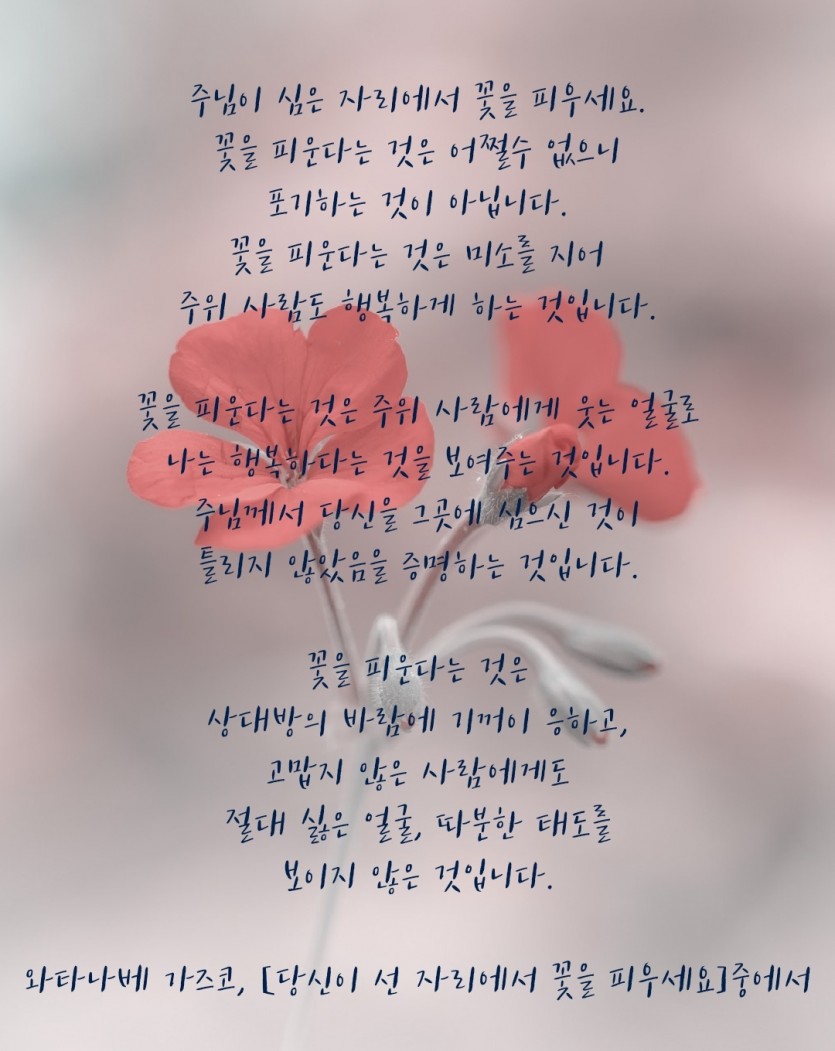 주님이 심은 자리에서 꽃을 피우세요.
꽃을 피운다는 것은 어쩔수 없으니
포기하는 것이 아닙니다.
꽃을 피운다는 것은 미소를 지어
주위 사람도 행복하게 하는 것입니다.
꽃을 피운다는 것은 주위 사람에게 웃는 얼굴로
나는 행복하다는 것을 보여주는 것입니다.
주님께서 당신을 그곳에 심으신 것이
틀리지 않았음을 증명하는 것입니다.
꽃을 피운다는 것은
상대방의 바람에 기꺼이 응하고,
고맙지 않은 사람에게도
절대 싫은 얼굴, 따분한 태도를
보이지 않은 것입니다.
와타나베 가즈코, [당신이 선 자리에서 꽃을 피우세요]중에서